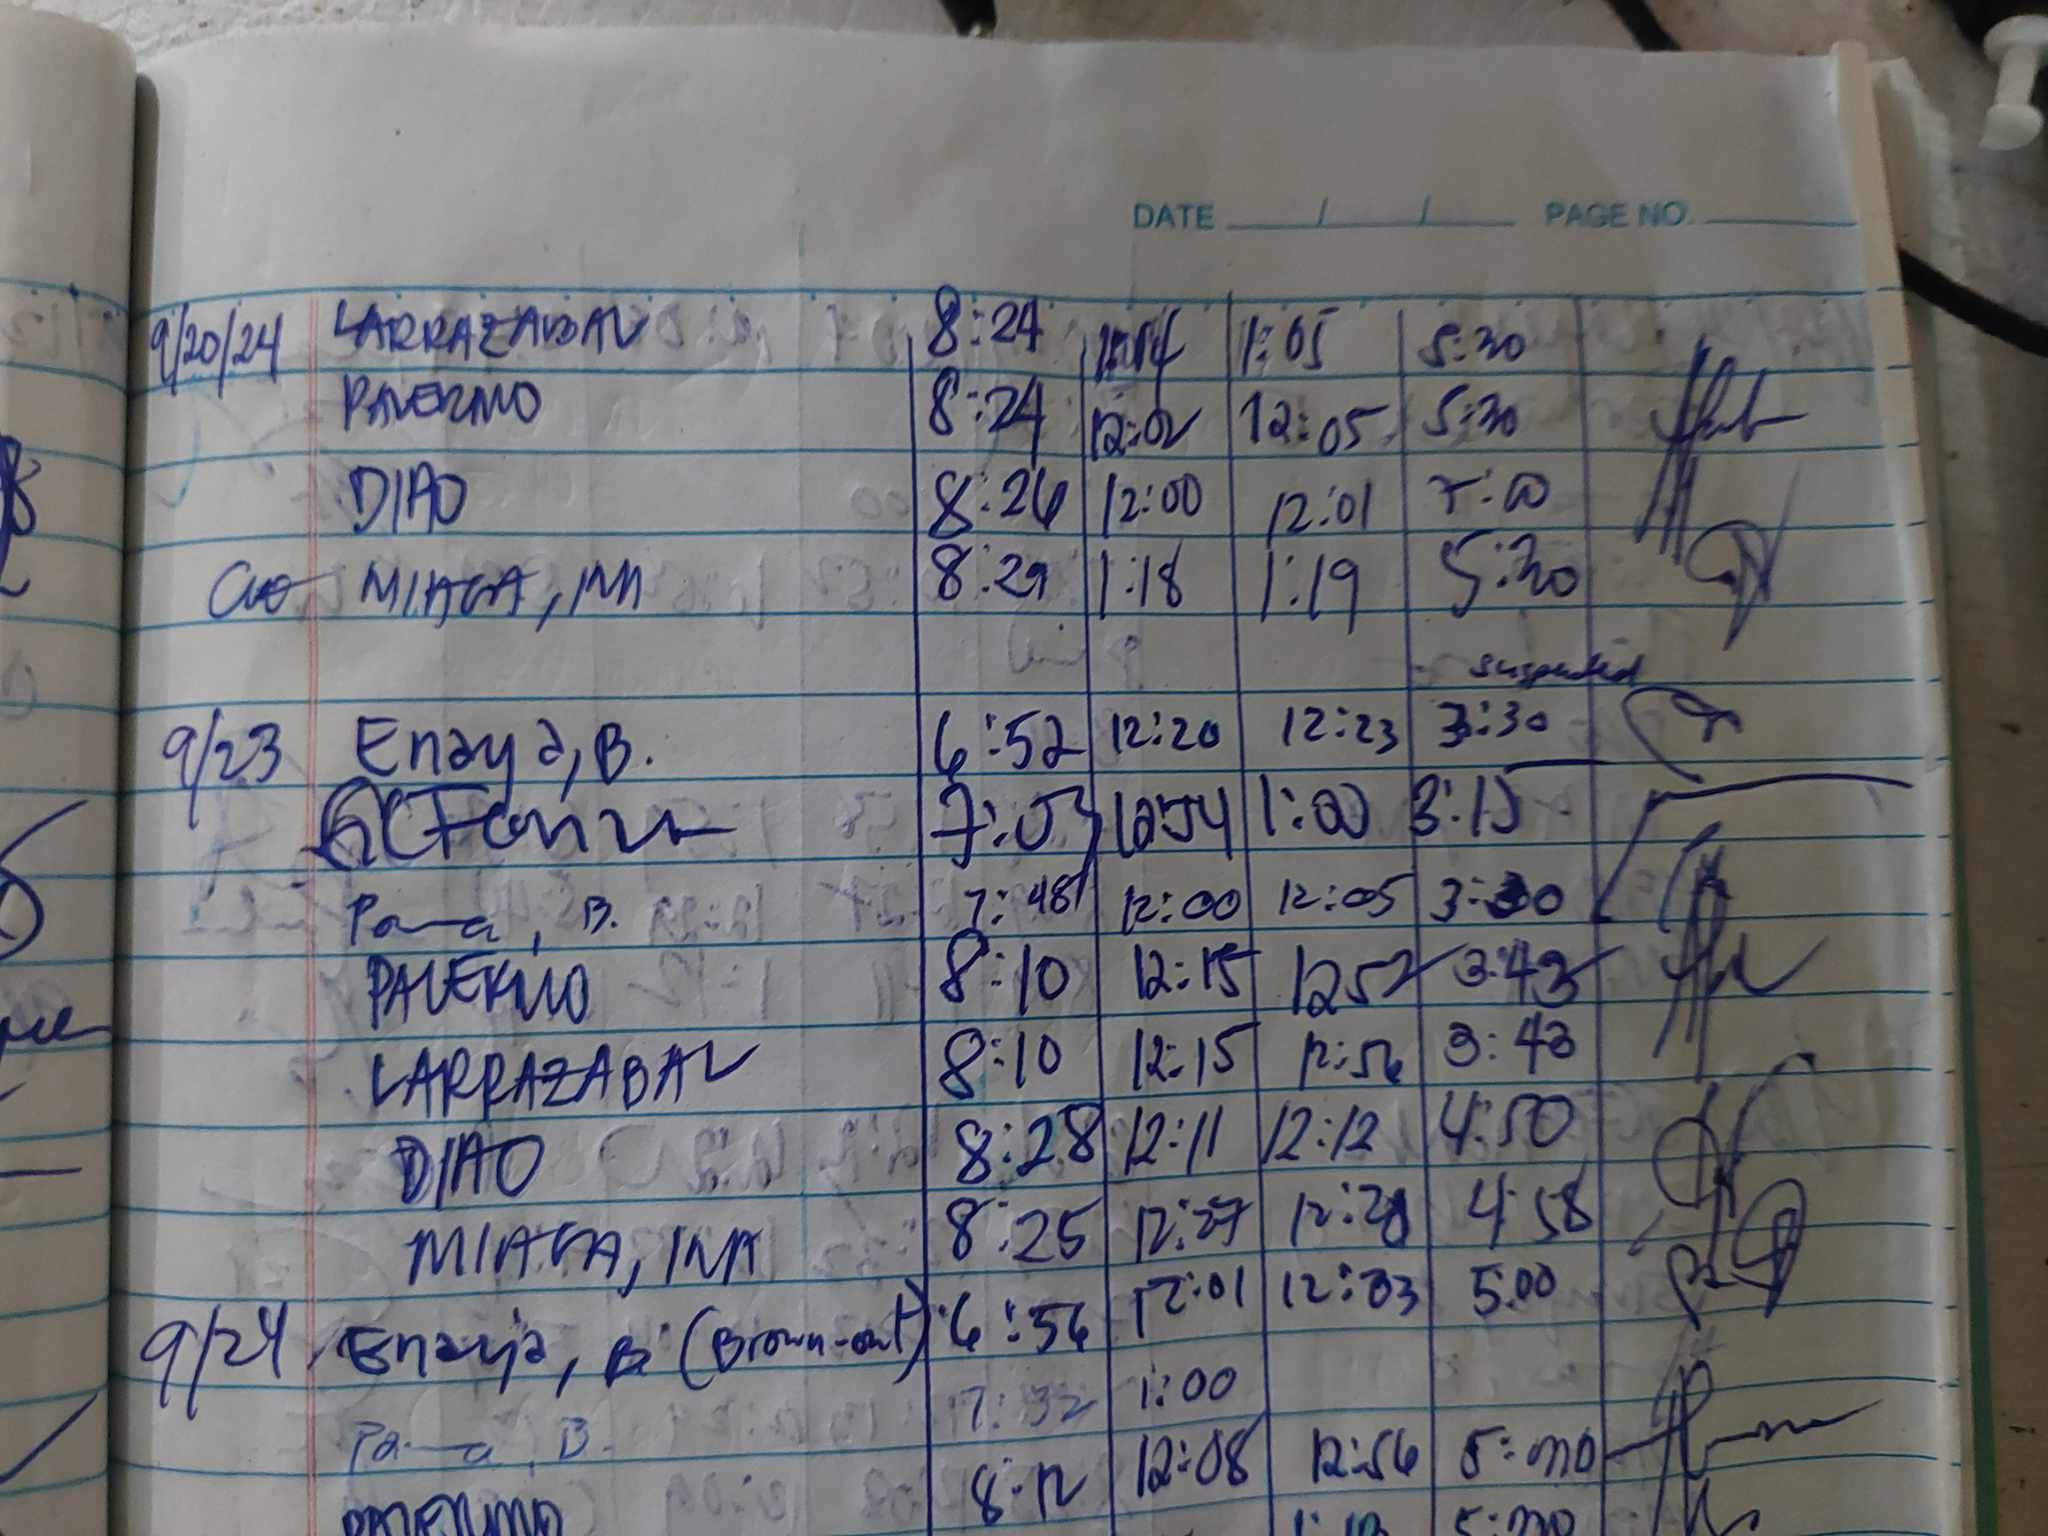 DATE / / PAGE NO.
9/20/24 LARRAZABAL 8:24 1:05 5:30
PALERMO 8:24 12:02 12:05 5:30
DIAO 8:26 12:00 12:01 :00
MIAGA, INA 8:29 1:18 1:19 5:30
suspended
9/23 Enaya, B. 6:52 12:20 12:23 3:30
7:03 1:00 3:15
B. 7:48 12:00 12:05 3:30
PALERMO 8:10 12:15 1252 3:43
LARRAZABAL 8:10 12:15 12:56 3:43
DIAO 8:28 12:11 12:12 4:50
MIAGA, INA 8:25 12:27 12:28 4:58
9/24 Enaya, B (Brown-out) 6:56 12:01 12:03 5:00
B. 7:32 1:00
PALERMO 8:12 12:08 12:56 5:00